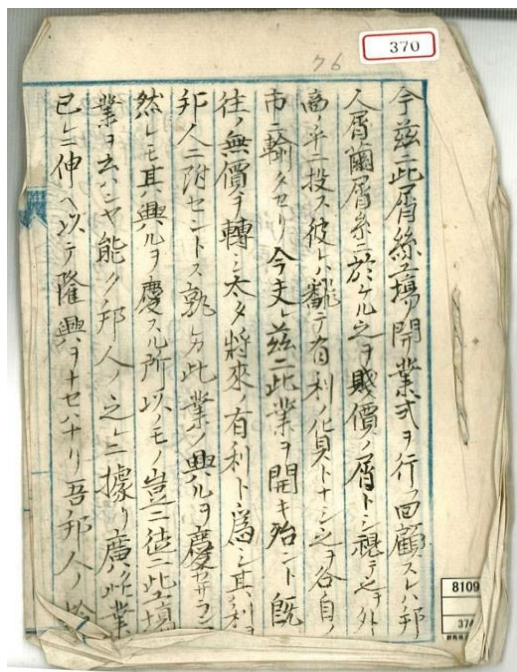 370
76
今茲ニ此屑絲工場ノ開業式ヲ行フ回顧スレハ邦
人屑繭屑糸ニ於ケル之ヲ賤價ノ屑トシ視テ之ヲ外
商ノ手ニ投ス彼レハ飜テ有利ノ貨トナシ之ヲ各自ノ
市ニ輸タセリ今夫レ茲ニ此業ヲ開キ殆ント既
往ノ無價ヲ轉シ太タ將來ノ有利ト為シ其利ヲ
邦人ニ附セントス孰レカ此業ノ興ルヲ慶セサラン
然レモ其興ルヲ慶スル所以ノモノ豈ニ徒ニ此場
業ヲ云ハンヤ能ク邦人ノ之レニ據リ廣ク此業
已ニ伸ヘ以テ隆興ヲナセハナリ吾邦人ノ
8109
374